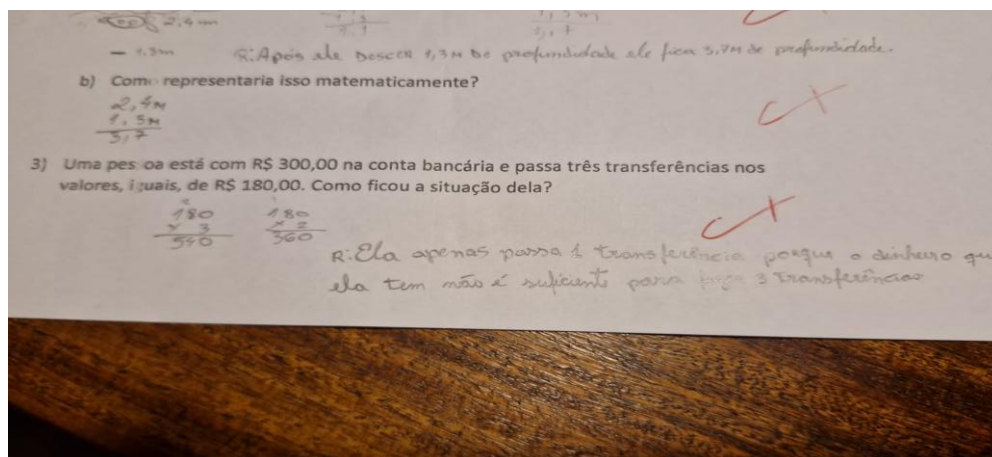 2.4m
- 1,3m R: Após ele Descer 1,3m de profundidade ele fica 3,7m de profundidade.
b) Como representaria isso matematicamente?
2,4m
1,3m
3,7
3) Uma pessoa está com R$ 300,00 na conta bancária e passa três transferências nos
valores, iguais, de R$ 180,00. Como ficou a situação dela?
180 180
x 3 x 2
540 360
R: Ela apenas passa 1 transferência porque o dinheiro qu
ela tem não é suficiente para 3 transferências